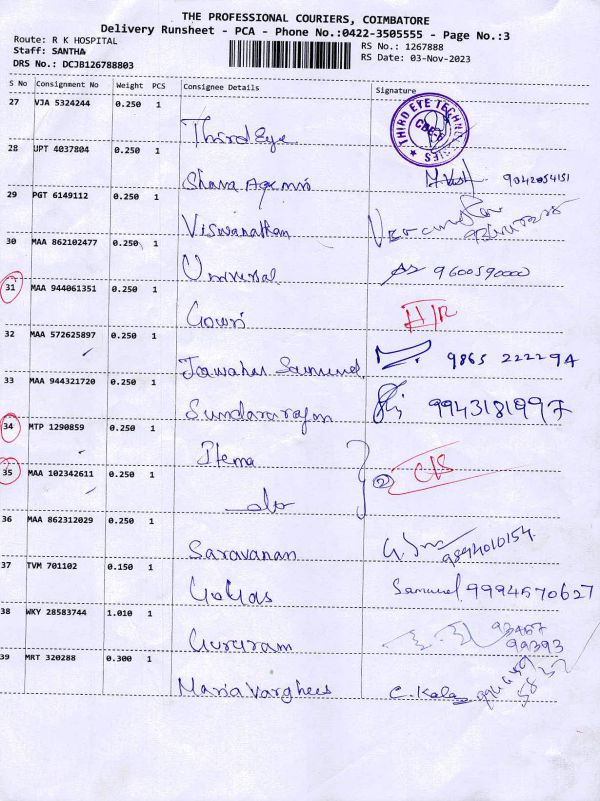 THE PROFESSIONAL COURIERS, COIMBATORE
Delivery Runsheet - PCA - Phone No.:0422-3505555 - Page No.:3
Route: R K HOSPITAL
Staff: SANTHA
RS No.: 1267888
DRS No.: DCJB126788803
RS Date: 03-Nov-2023
S No Consignment No Weight PCS Consignee Details Signature
27 VJA 5324244 0.250 1
Third Eye THIRD EYE TECHNOLOGIES CBE-6
28 UPT 4037804 0.250 1
9042054151
29 PGT 6149112 0.250 1
Viswanathan
30 MAA 862102477 0.250 1
Universal 9600590000
31 MAA 944061351 0.250 1
Gowri
32 MAA 572625897 0.250 1
Jawahar Samuel 9865 222294
33 MAA 944321720 0.250 1
Sundararajan 9943181997
34 MTP 1290859 0.250 1
Hema
35 MAA 102342611 0.250 1
do (2)
36 MAA 862312029 0.250 1
Saravanan 9894010154
37 TVM 701102 0.150 1
Samuel 9994570627
38 WKY 28583744 1.010 1
Gururam 93457
99393
39 MRT 320288 0.300 1
Maria Varghees C. Kala